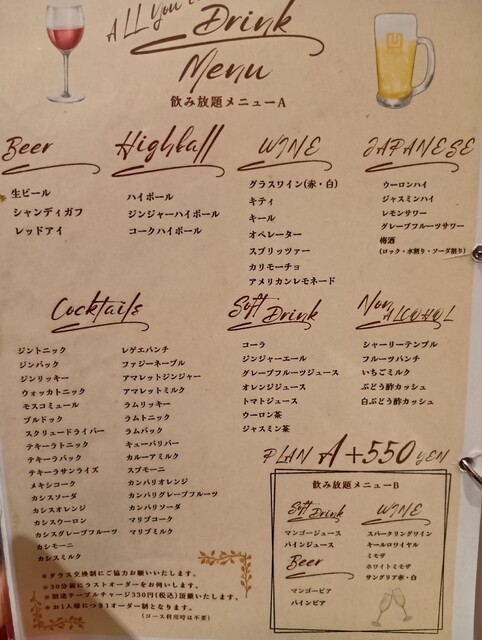 ALL You c
Drink
Menu
飲み放題メニューA
Beer
生ビール
シャンディガフ
レッドアイ
Highball
ハイボール
ジンジャーハイボール
コークハイボール
WINE
グラスワイン(赤・白)
キティ
キール
オペレーター
スプリッツァー
カリモーチョ
アメリカンレモネード
JAPANESE
ウーロンハイ
ジャスミンハイ
レモンサワー
グレープフルーツサワー
梅酒
(ロック・水割り・ソーダ割り)
Cocktails
ジントニック
ジンバック
ジンリッキー
ウォッカトニック
モスコミュール
ブルドック
スクリュードライバー
テキーラトニック
テキーラバック
テキーラサンライズ
メキシコーク
カシスソーダ
カシスオレンジ
カシスウーロン
カシスグレープフルーツ
カシモーニ
カシスミルク
レゲエパンチ
ファジーネーブル
アマレットジンジャー
アマレットミルク
ラムリッキー
ラムトニック
ラムバック
キューバリバー
カルーアミルク
スプモーニ
カンパリオレンジ
カンパリグレープフルーツ
カンパリソーダ
マリブコーク
マリブミルク
Soft Drink
コーラ
ジンジャーエール
グレープフルーツジュース
オレンジジュース
トマトジュース
ウーロン茶
ジャスミン茶
Non ALCOHOL
シャーリーテンプル
フルーツパンチ
いちごミルク
ぶどう酢カッシュ
白ぶどう酢カッシュ
PLAN A +550 YEN
飲み放題メニューB
Soft Drink
マンゴージュース
パインジュース
Beer
マンゴービア
パインビア
WINE
スパークリングワイン
キールロワイヤル
ミモザ
ホワイトミモザ
サングリア赤・白
※グラス交換制にご協力お願いします。
※30分前にラストオーダーをお伺いします。
※別途テーブルチャージ330円(税込)頂戴いたします。
※お1人様につき1オーダー制となります。
(コース利用時は不要)